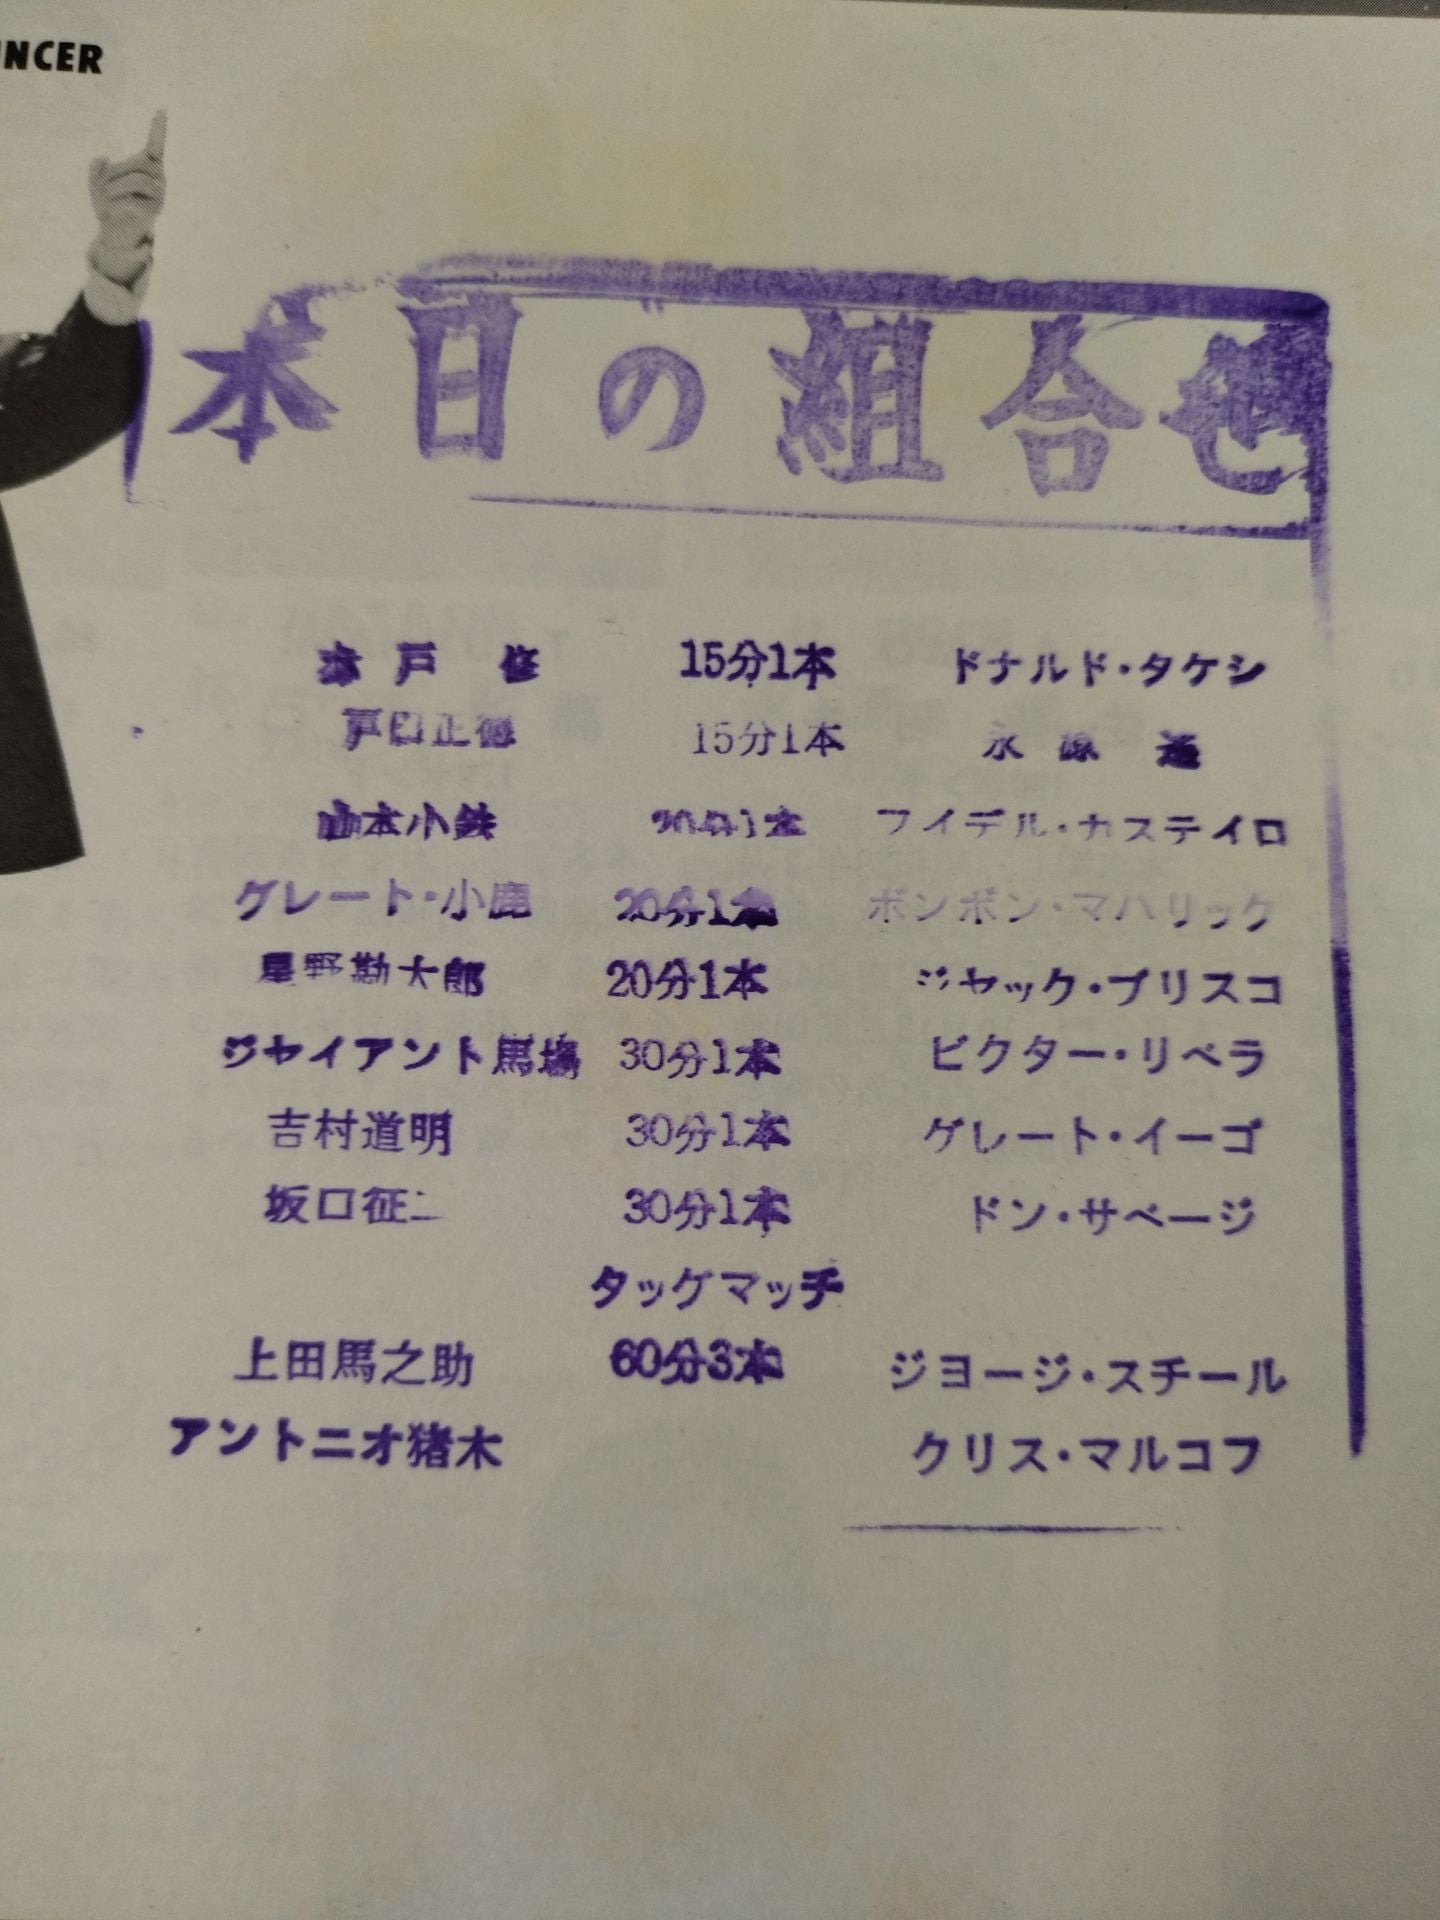 NCER
本日の組合せ
木戸 修 15分1本 ドナルド・タケシ
戸口正徳 15分1本 永源 遥
山本小鉄 20分1本 フイデル・カステイロ
グレート・小鹿 20分1本 ボンボン・マハリック
星野勘太郎 20分1本 ジヤック・ブリスコ
ジヤイアント馬場 30分1本 ビクター・リベラ
吉村道明 30分1本 グレート・イーゴ
坂口征二 30分1本 ドン・サベージ
タッグマッチ
上田馬之助 60分3本 ジヨージ・スチール
アントニオ猪木 クリス・マルコフ